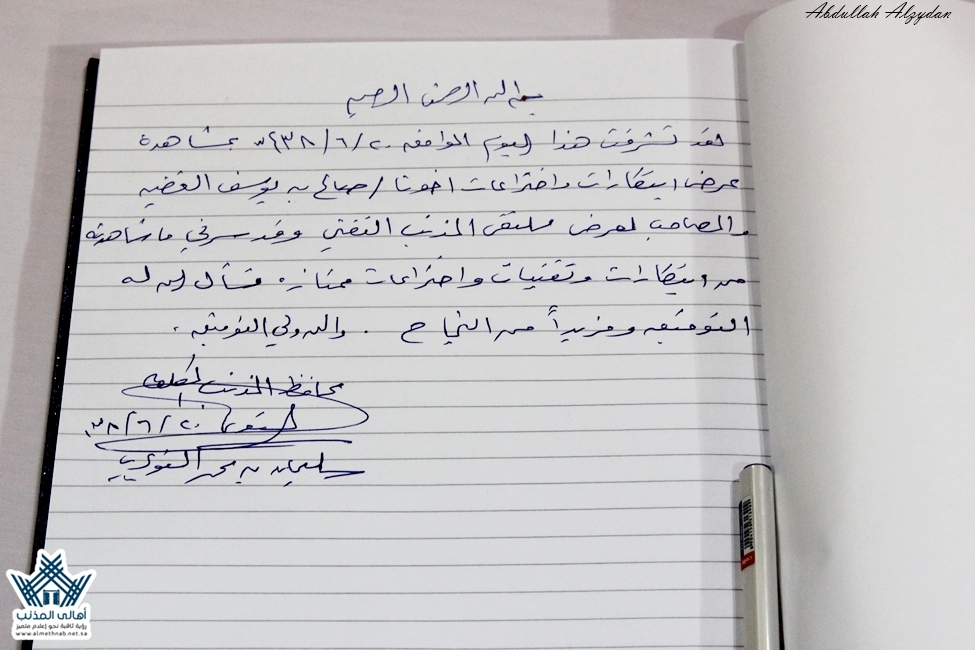 Abdullah Alzydan
بسم الله الرحمن الرحيم
لقد تشرفت هذا اليوم الموافق ١٤٣٨/٦/٢٠هـ بمشاهدة
عرض ابتكارات واختراعات اخونا / صالح بن يوسف
والمصاحب لعرض ملتقى المذنب التقني وقد سرني ما شاهدته
من ابتكارات وتقنيات واختراعات ممتازه فنسأل الله له
التوفيق ومزيداً من النجاح . والله ولي التوفيق .
محافظ المذنب المكلف
٣٨/٦/٢٠
سليمان بن محمد
أهالي المذنب
رؤية ثاقبة نحو إعلام متميز
www.almethnab.net.sa